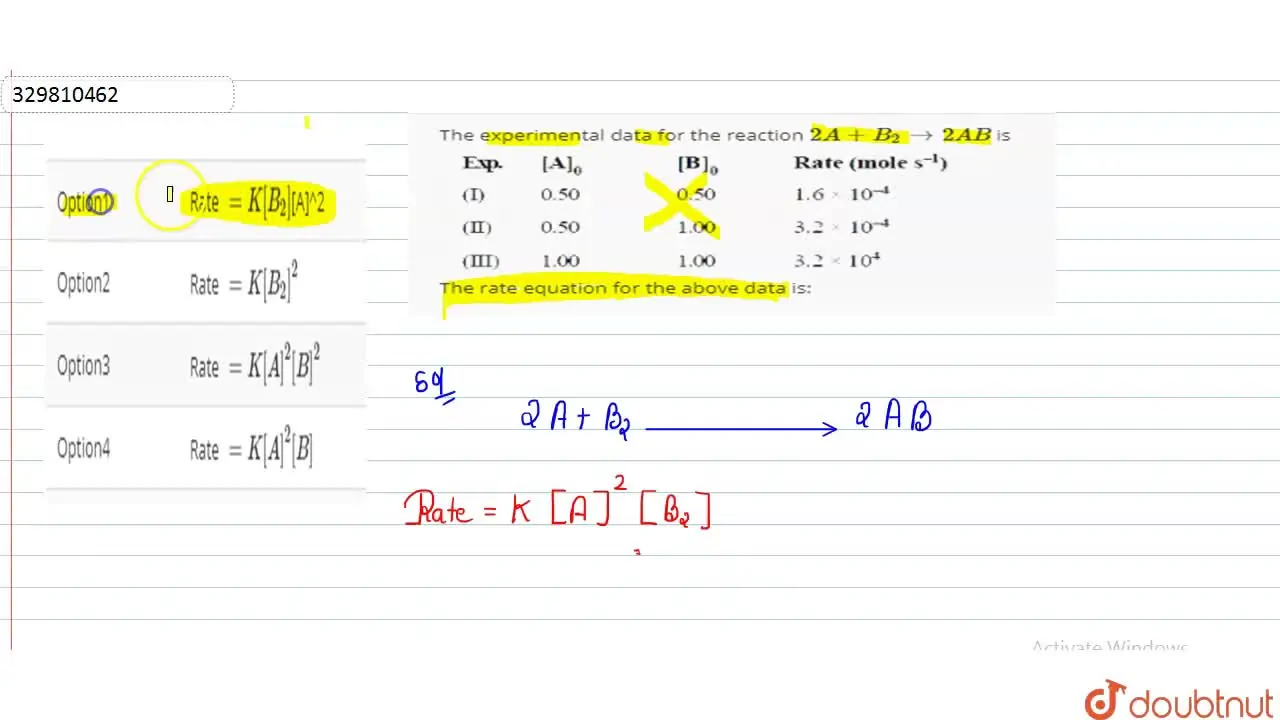 329810462
The experimental data for the reaction 2A + B₂ → 2AB is
Exp. [A]₀ [B]₀ Rate (mole s⁻¹)
(I) 0.50 0.50 1.6 × 10⁻⁴
(II) 0.50 1.00 3.2 × 10⁻⁴
(III) 1.00 1.00 3.2 × 10⁴
The rate equation for the above data is:
Option1 Rate = K[B₂][A]^2
Option2 Rate = K[B₂]²
Option3 Rate = K[A]²[B]²
Option4 Rate = K[A]²[B]
2A + B₂ → 2AB
Rate = K [A]² [B₂]
Activate Windows
doubtnut